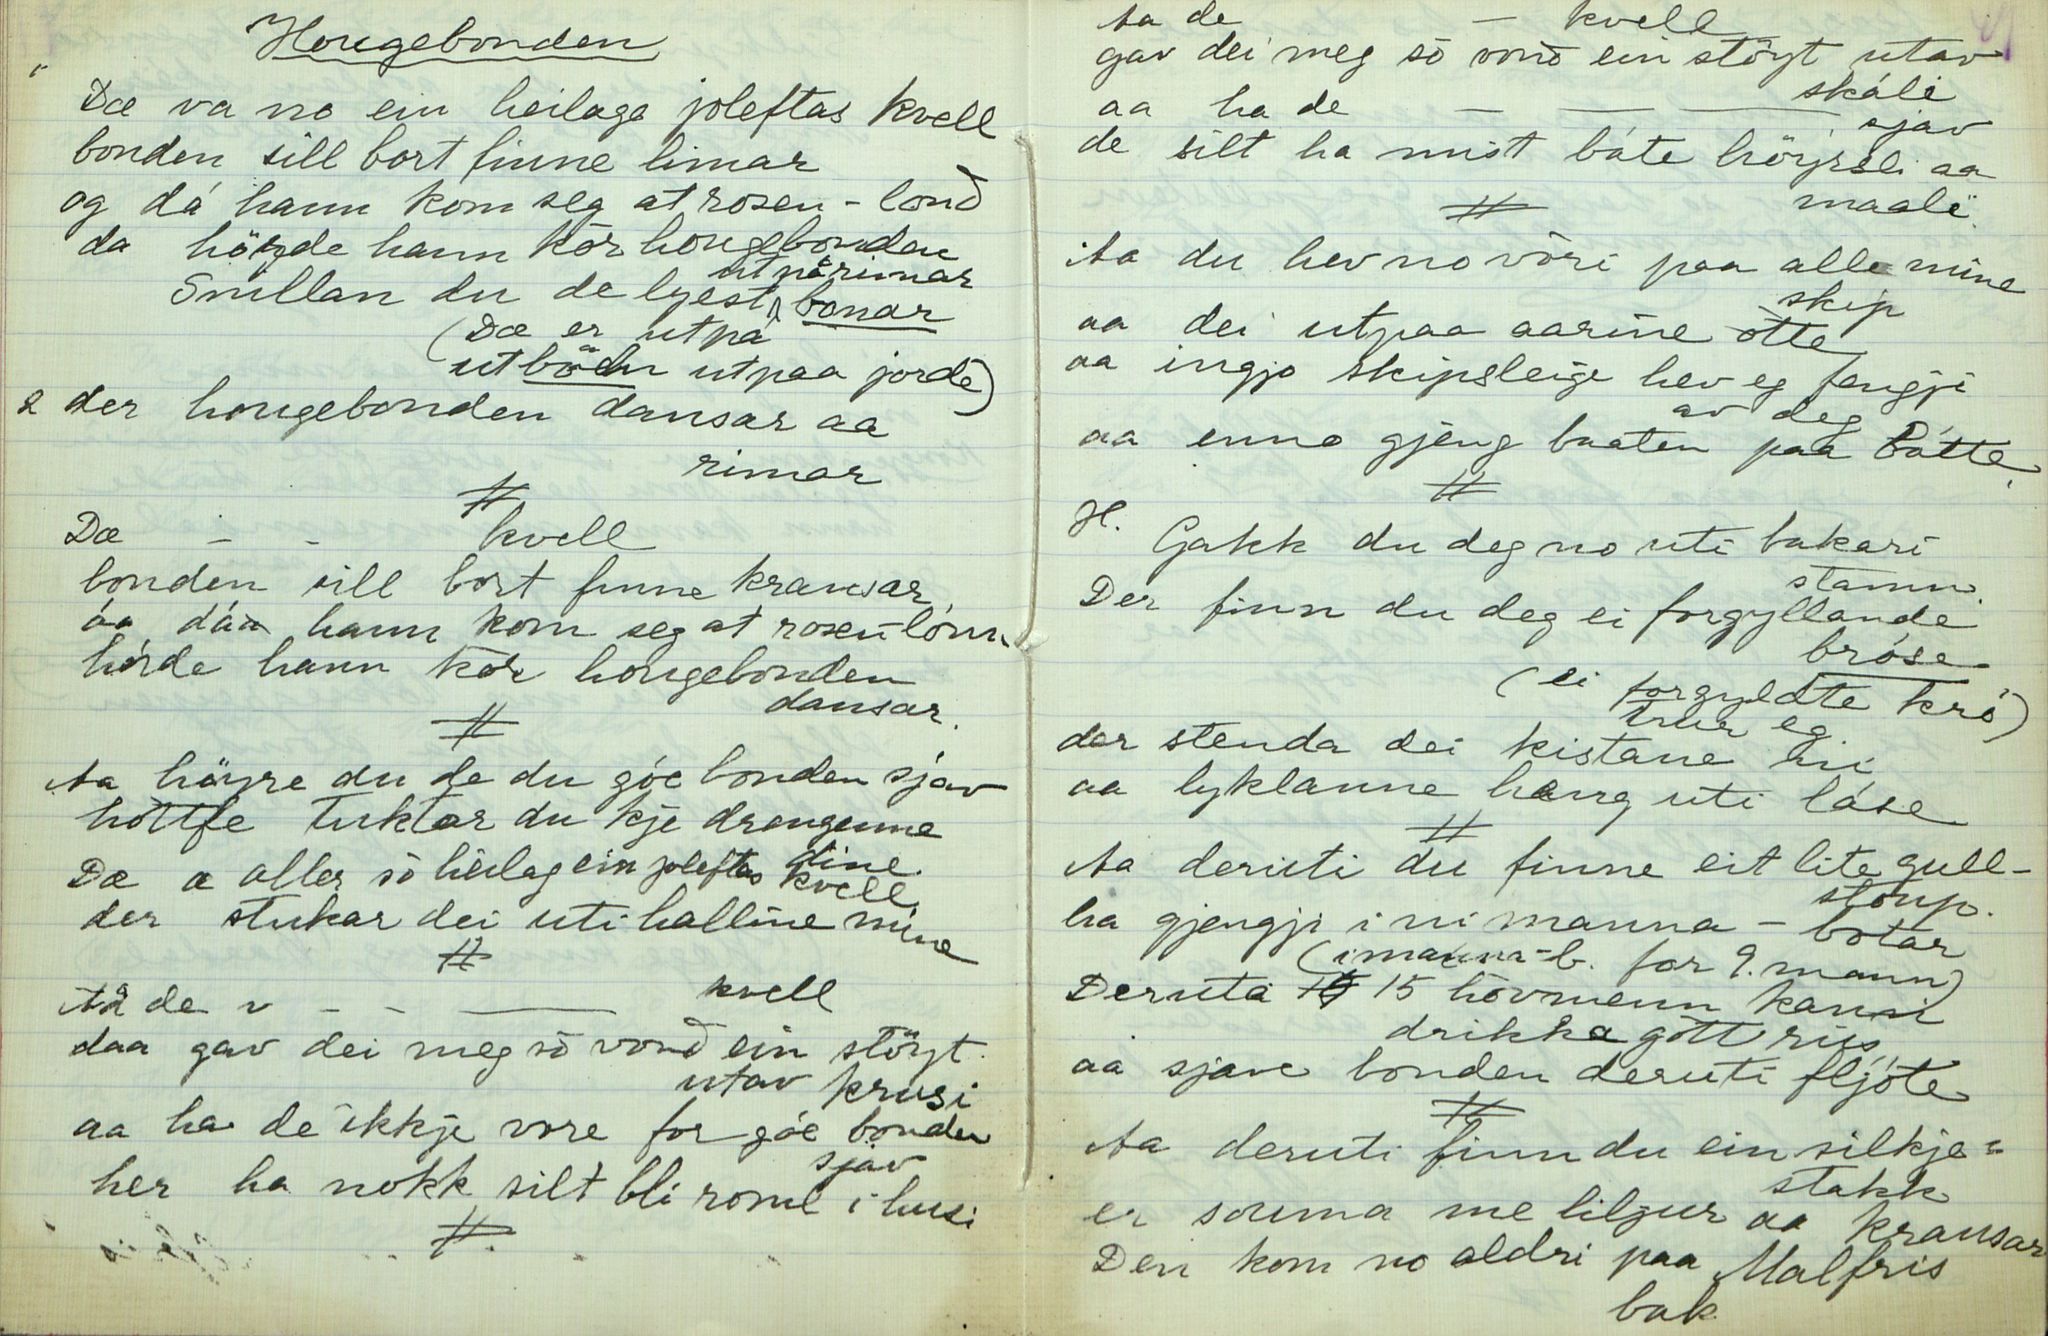 Hougebonden
Dæ va no ein heilage joleftas kvell
bonden sill bort finne limar
og dá hann kom seg at rosen-lond
da höyde hann kor hougebonden
utpá rimar
Snillan du de lyest bonar
(Dæ er utpá
utbödn utpaa jorde)
2 der hougebonden dansar aa
rimar
#
Dæ - - kvell
bonden sill bort finne kransar
áa dáa hann kom seg at rosenlónn
hórde hann kor hougebonden
dansar.
#
Aa höyre du de du góe bonden sjav
hottfe tuktar du kje drengenne
dine.
Dæ æ aller sö heilag ein joleftas kvell
der stukar dei uti halline mine
#
Aa de v - - — kvell
daa gav dei meg sö vond ein stöyt
utav krusi
aa ha de ikkje vore for góe bonden
sjav
her ha nokk silt bli roml i husi
#
Aa de — kvell
gav dei meg sö vond ein stöyt utav
skáli
aa ha de — — —
sjav
de silt ha mist báte höyrsli aa
maali
#
Aa du hev no vöri paa alle mine
skip
aa dei utpaa aarine otte
aa ingjo skipsleige hev eg fengji
av deg
aa enno gjeng baaten paa bátte.
#
H. Gakk du deg no uti bakari
stamn.
Der finn du deg ei forgyllande
bróse
(ei forgyldte krö)
trur eg.
der stenda dei kistane ni
aa lyklanne heng uti láse
#
Aa deruti du finne eit lite gull-
stoup.
ha gjengji i ni manna - botar
(i manna-b. for 9. mann)
Deruta 15 hövmenn kann
drikka gott rus
aa sjave bonden deruti fljóte
#
Aa deruti finn du ein silkje=
stakk
er souma me liljur aa kransar
Den kom no aldri paa Malfris
bak